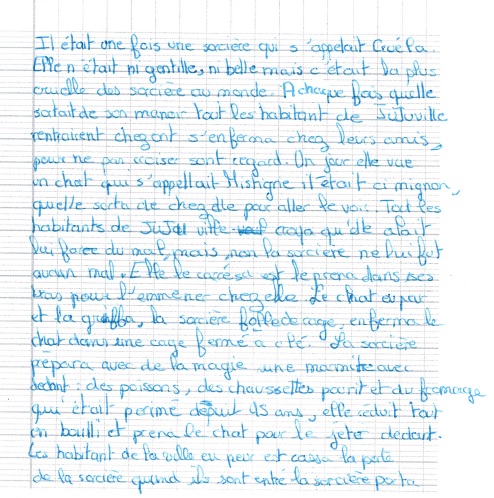 Il était une fois une sorcière qui s'appelait Cruéla.
Elle n'était ni gentille, ni belle mais c'était la plus
cruelle des sorcière au monde. A chaque fois quelle
sortait de son manoir tout les habitant de JuJuville
rentraient chez ont s'enferma chez leurs amis,
pour ne pas croiser sont regard. Un jour elle vue
un chat qui s'appellait Mistigne il était ci mignon,
quelle sorta de chez elle pour aller le voir. Tout les
habitants de JuJu ville craya qu'elle alait
lui faire du mal, mais, non la sorcière ne lui fut
aucun mal. Elle le caresa est le prena dans ses
bras pour l'emmener chez elle. Le chat eu peur
et la griffa, la sorcière folle de rage, enferma le
chat dans une cage fermé a clé. La sorcière
prépara avec de la magie une marmite avec
dedant : des poissons, des chaussettes pourit et du fromage
qui était périmé depuit 15 ans, elle réduit tout
en bouilli et prena le chat pour le jeter dedant.
Les habitant de la ville eu peur est cassa la porte
de la sorcière quand ils sont entré la sorcière porta